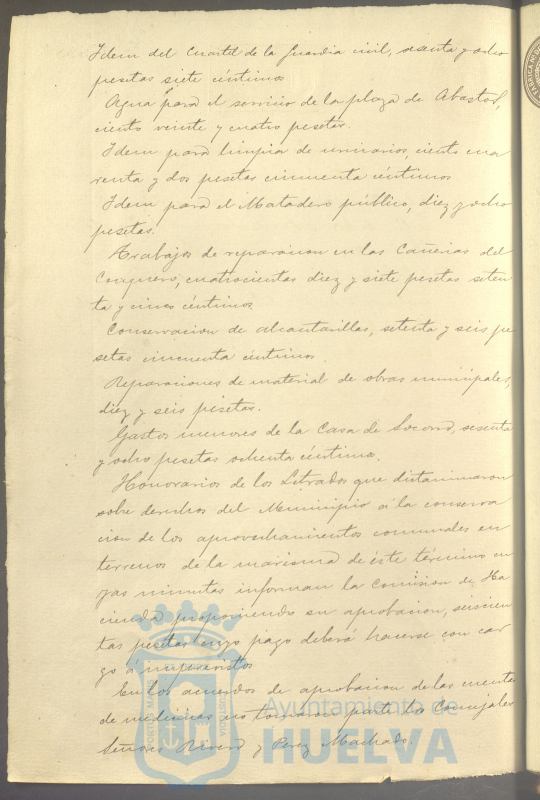 Idem del Cuartel de la Guardia civil, sesenta y ocho
pesetas siete céntimos
Agua para el servicio de la plaza de Abastos,
ciento veinte y cuatro pesetas.
Idem para limpia de urinarios, ciento cua
renta y dos pesetas cincuenta céntimos
Idem para el Matadero público, diez y ocho
pesetas.
Trabajos de reparacion en las Cañerias del
Conquero, cuatrocientas diez y siete pesetas seten
ta y cinco céntimos
Conservacion de alcantarillas, setenta y seis pe
setas cincuenta céntimos.
Reparaciones de material de obras municipales,
diez y seis pesetas.
Gastos menores de la Casa de Socorro, sesenta
y ocho pesetas ochenta céntimos.
Honorarios de los Letrados que dictaminaron
sobre derechos del Municipio á la conserva
cion de los aprovechamientos comunales en
terrenos de la marisma de éste término cu
yas minutas informan la Comision de Ha
cienda proponiendo su aprobacion, seiscien
tas pesetas cuyo pago deberá hacerse con car
go á imprevistos
En los acuerdos de aprobacion de las cuentas
de medicinas no tomaron parte los Concejales
Señores Rivero y Perez Machado.
Ayuntamiento de
HUELVA